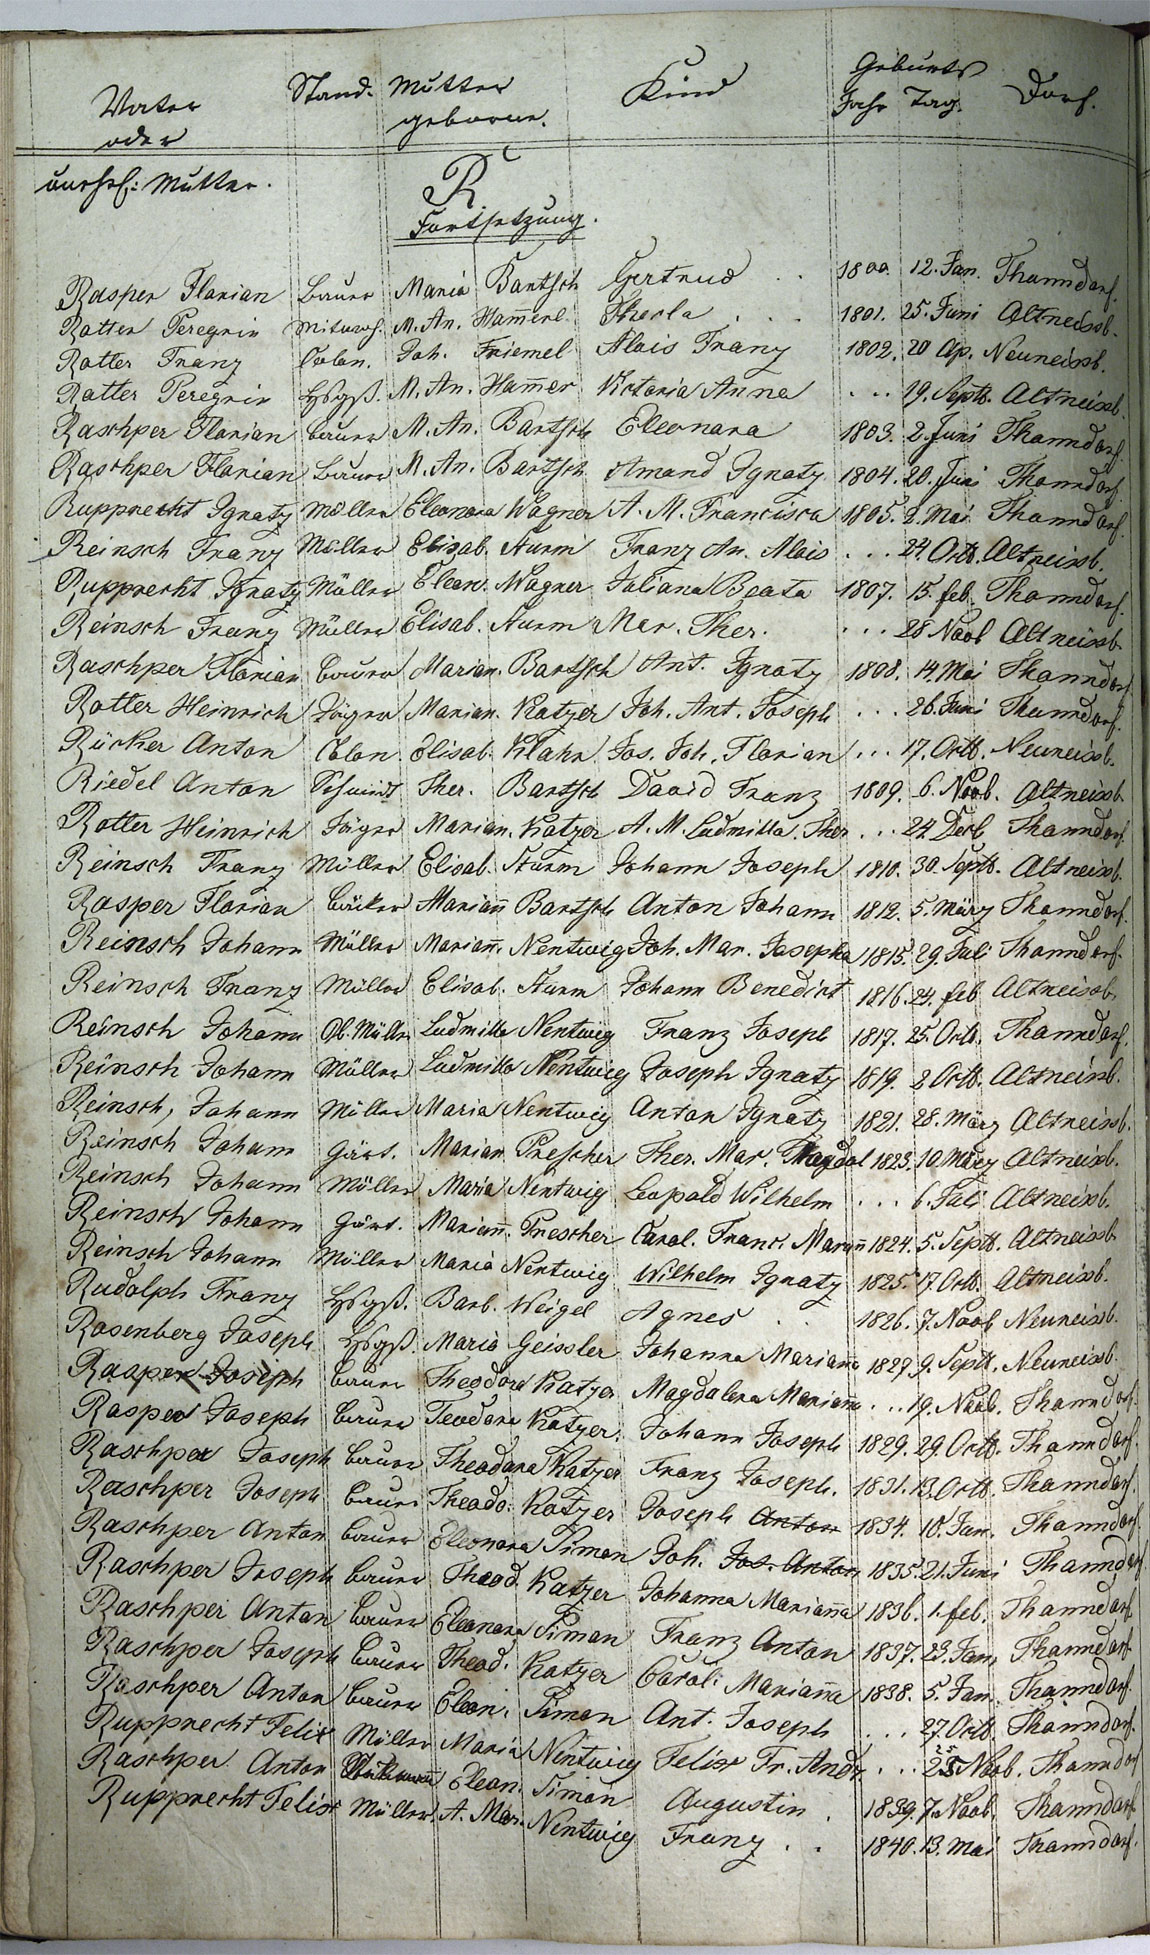 Vater Stand. Mutter Kind Geburts Dorf.
oder geborne. Jahr Tag.
unehel: Mutter.
R
Fortsetzung.
Rasper Florian Bauer Maria Bartsch Gertrud . . 1800. 12. Jan. Thanndorf.
Rotter Peregrin M. An. Hamerl Thecla . . . 1801. 25. Juni Altneissb.
Rotter Franz Colon. Joh. Friemel Alois Franz 1802. 20 Ap. Neuneissb.
Rotter Peregrin Hsgß. M. An. Hamer Victoria Anna . . . 19. Septb. Altneissb.
Raschper Florian Bauer M. An. Bartsch Eleonara 1803. 2. Juni Thanndorf.
Raschper Florian Bauer M. An. Bartsch Amand Ignatz 1804. 20. Juni Thanndorf.
Rupprecht Ignatz Müller Eleonora Wagner A. M. Francisca 1805. 2. Mai Thanndorf.
Reinsch Franz Müller Elisab. Sturm Franz An. Alois . . . 24. Octb. Altneissb.
Rupprecht Ignatz Müller Eleon. Wagner Juliana Beata 1807. 15. feb. Thanndorf.
Reinsch Franz Müller Elisab. Sturm Mar. Ther. . . . 28 Novb Altneissb.
Raschper Florian Bauer Marian. Bartsch Ant. Ignatz 1808. 14. Mai Thanndorf.
Rotter Heinrich Jäger Marian. Katzer Joh. Ant. Joseph . . . 26. Juni Thanndorf.
Rücker Anton Colon. Elisab. Klahr Jos. Joh. Florian . . . 17. Octb. Neuneissb.
Riedel Anton Schmidt Ther. Bartsch David Franz 1809. 6. Novb. Altneissb.
Rotter Heinrich Jäger Marian. Katzer A. M. Ludmilla Ther . . . 24 Decb Thanndorf.
Reinsch Franz Müller Elisab. Sturm Johann Joseph 1810. 30. Septb. Altneissb.
Rasper Florian Mariañ Bartsch Anton Johann 1812. 5. März Thanndorf.
Reinsch Johann Müller Mariañ. Nentwig Joh. Mar. Josepha 1815. 29. Juli Thanndorf.
Reinsch Franz Müller Elisab. Sturm Johann Benedict 1816. 24. feb Altneissb.
Reinsch Johann Ob. Müller Ludmilla Nentwig Franz Joseph 1817. 25. Octb. Thanndorf.
Reinsch Johann Müller Ludmilla Nentwig Joseph Ignatz 1819. 2 Octb. Altneissb.
Reinsch, Johann Müller Maria Nentwig Anton Ignatz 1821. 28. März Altneissb.
Reinsch Johann Gärt. Marian Prescher Ther. Mar. Magdal 1823. 10. März Altneissb.
Reinsch Johann Müller Maria Nentwig Leopold Wilhelm . . . 6. Juli Altneissb.
Reinsch Johann Gärt. Mariañ. Prescher Carol. Franc. Mariañ 1824. 5. Septb. Altneissb.
Reinsch Johann Müller Maria Nentwig Wilhelm Ignatz 1825. 17. Octb. Altneissb.
Rudolph Franz Hsgß. Barb. Weigel Agnes . . 1826. 7. Novb Neuneissb.
Rosenberg Joseph Hsgß. Maria Geissler Johanna Marianna 1827. 9. Septb. Neuneissb.
Rasper Joseph Bauer Theodora Katzer Magdalena Marianna . . . 19. Novb. Thanndorf.
Rasper Joseph Bauer Teodora Katzer. Johann Joseph 1829. 29. Octb. Thanndorf.
Raschper Joseph Bauer Theodora Katzer Franz Joseph. 1831. 13. Octb. Thanndorf.
Raschper Joseph Bauer Theodo. Katzer Joseph Anton 1834. 10. Jan. Thanndorf.
Raschper Anton Bauer Eleonora Simon Joh. Jos. Anton 1835. 21. Juni Thanndorf
Raschper Joseph Bauer Theod. Katzer Johanna Mariaña 1836. 1. feb. Thanndorf.
Raschper Anton Bauer Eleonora Simon Franz Anton 1837. 23. Jan. Thanndorf.
Raschper Joseph Bauer Theod. Katzer Carol: Mariaña 1838. 5. Jan. Thanndorf.
Raschper Anton Bauer Eleon: Simon Ant. Joseph . . . 27. Octb Thanndorf.
Rupprecht Felix Müller Maria Nentwig Felix Fr. Andr. . . . 25 Novb. Thanndorf
Raschper Anton Eleon. Simon Augustin . 1839. 7. Novb. Thanndorf.
Rupprecht Felix Müller. A. Mar. Nentwig Franz . . 1840. 13. Mai Thanndorf.